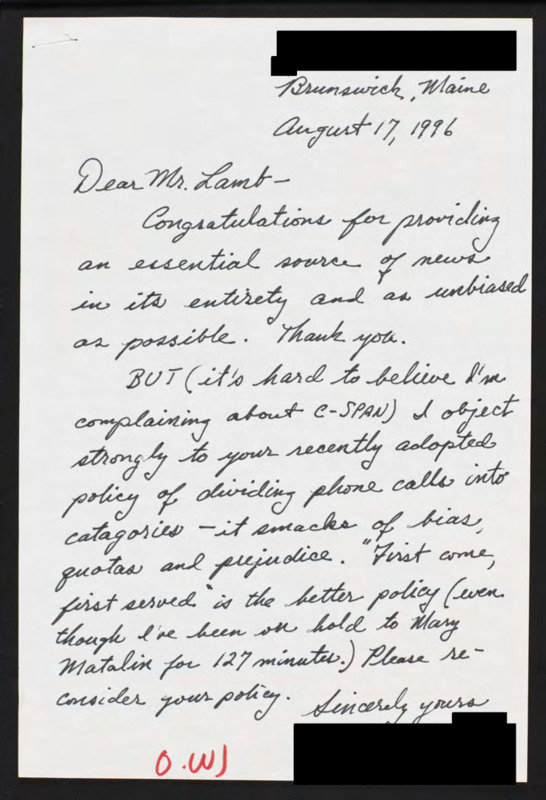 Brunswick, Maine
August 17, 1996
Dear Mr. Lamb-
Congratulations for providing
an essential source of news
in its entirety and as unbiased
as possible. Thank you.
BUT (it's hard to believe I'm
complaining about C-SPAN) I object
strongly to your recently adopted
policy of dividing phone calls into
catagories - it smacks of bias,
quotas and prejudice. "First come,
first served" is the better policy (even
though I've been on hold to Mary
Matalin for 127 minutes.) Please re-
consider your policy.
Sincerely yours
O.WJ